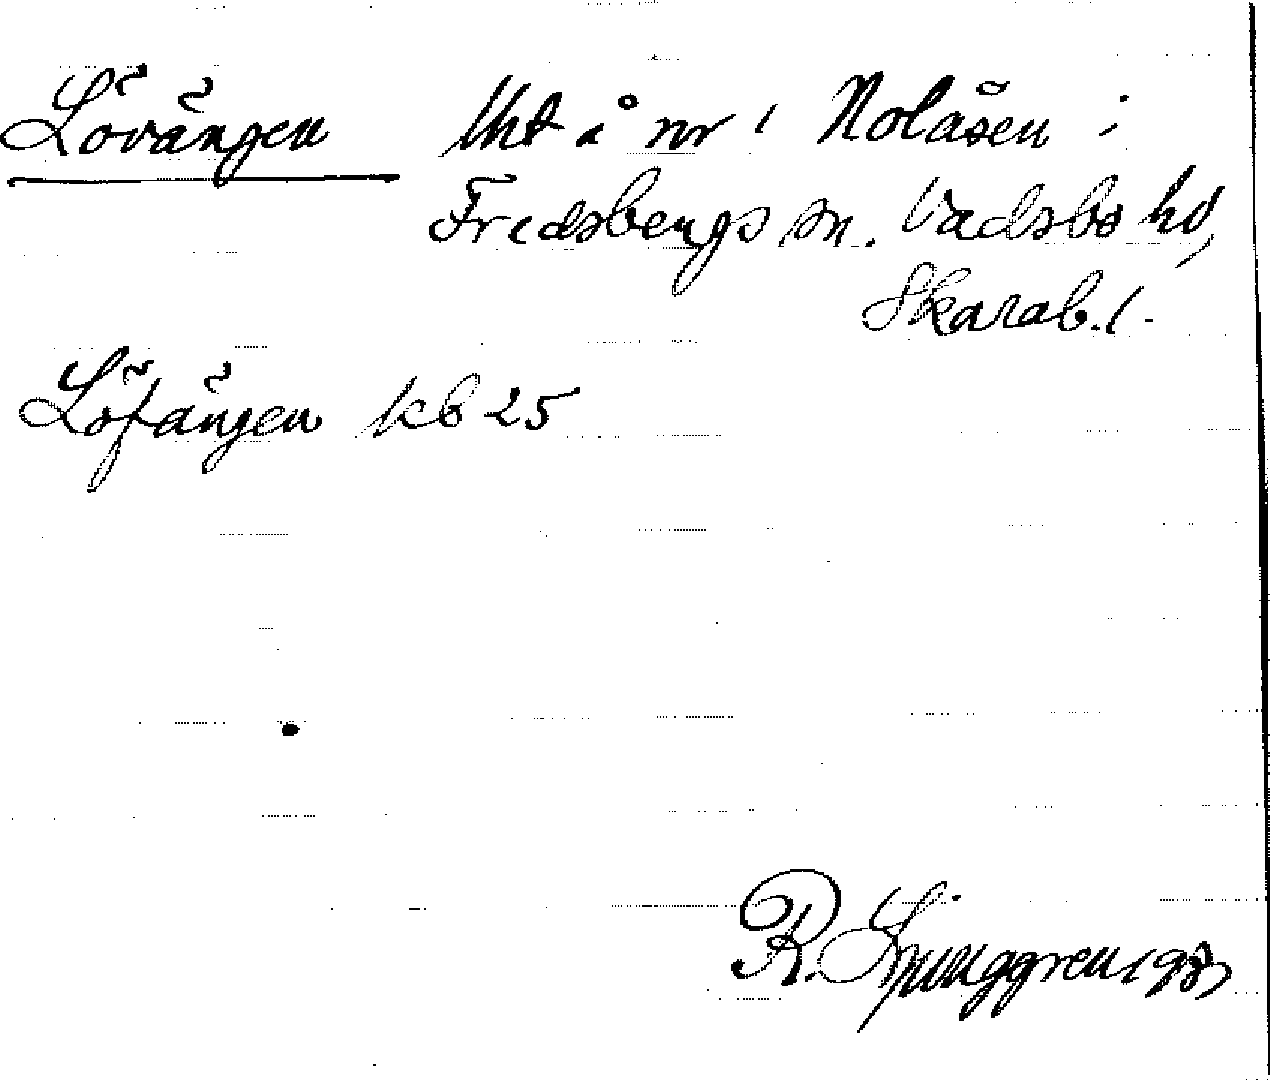 Lövängen Uht å nr 1 Nolåsen i
Fredsbergs sn. Vadsbo hd,
Skarab. l.
Löfängen kb 25
R. Ljunggren